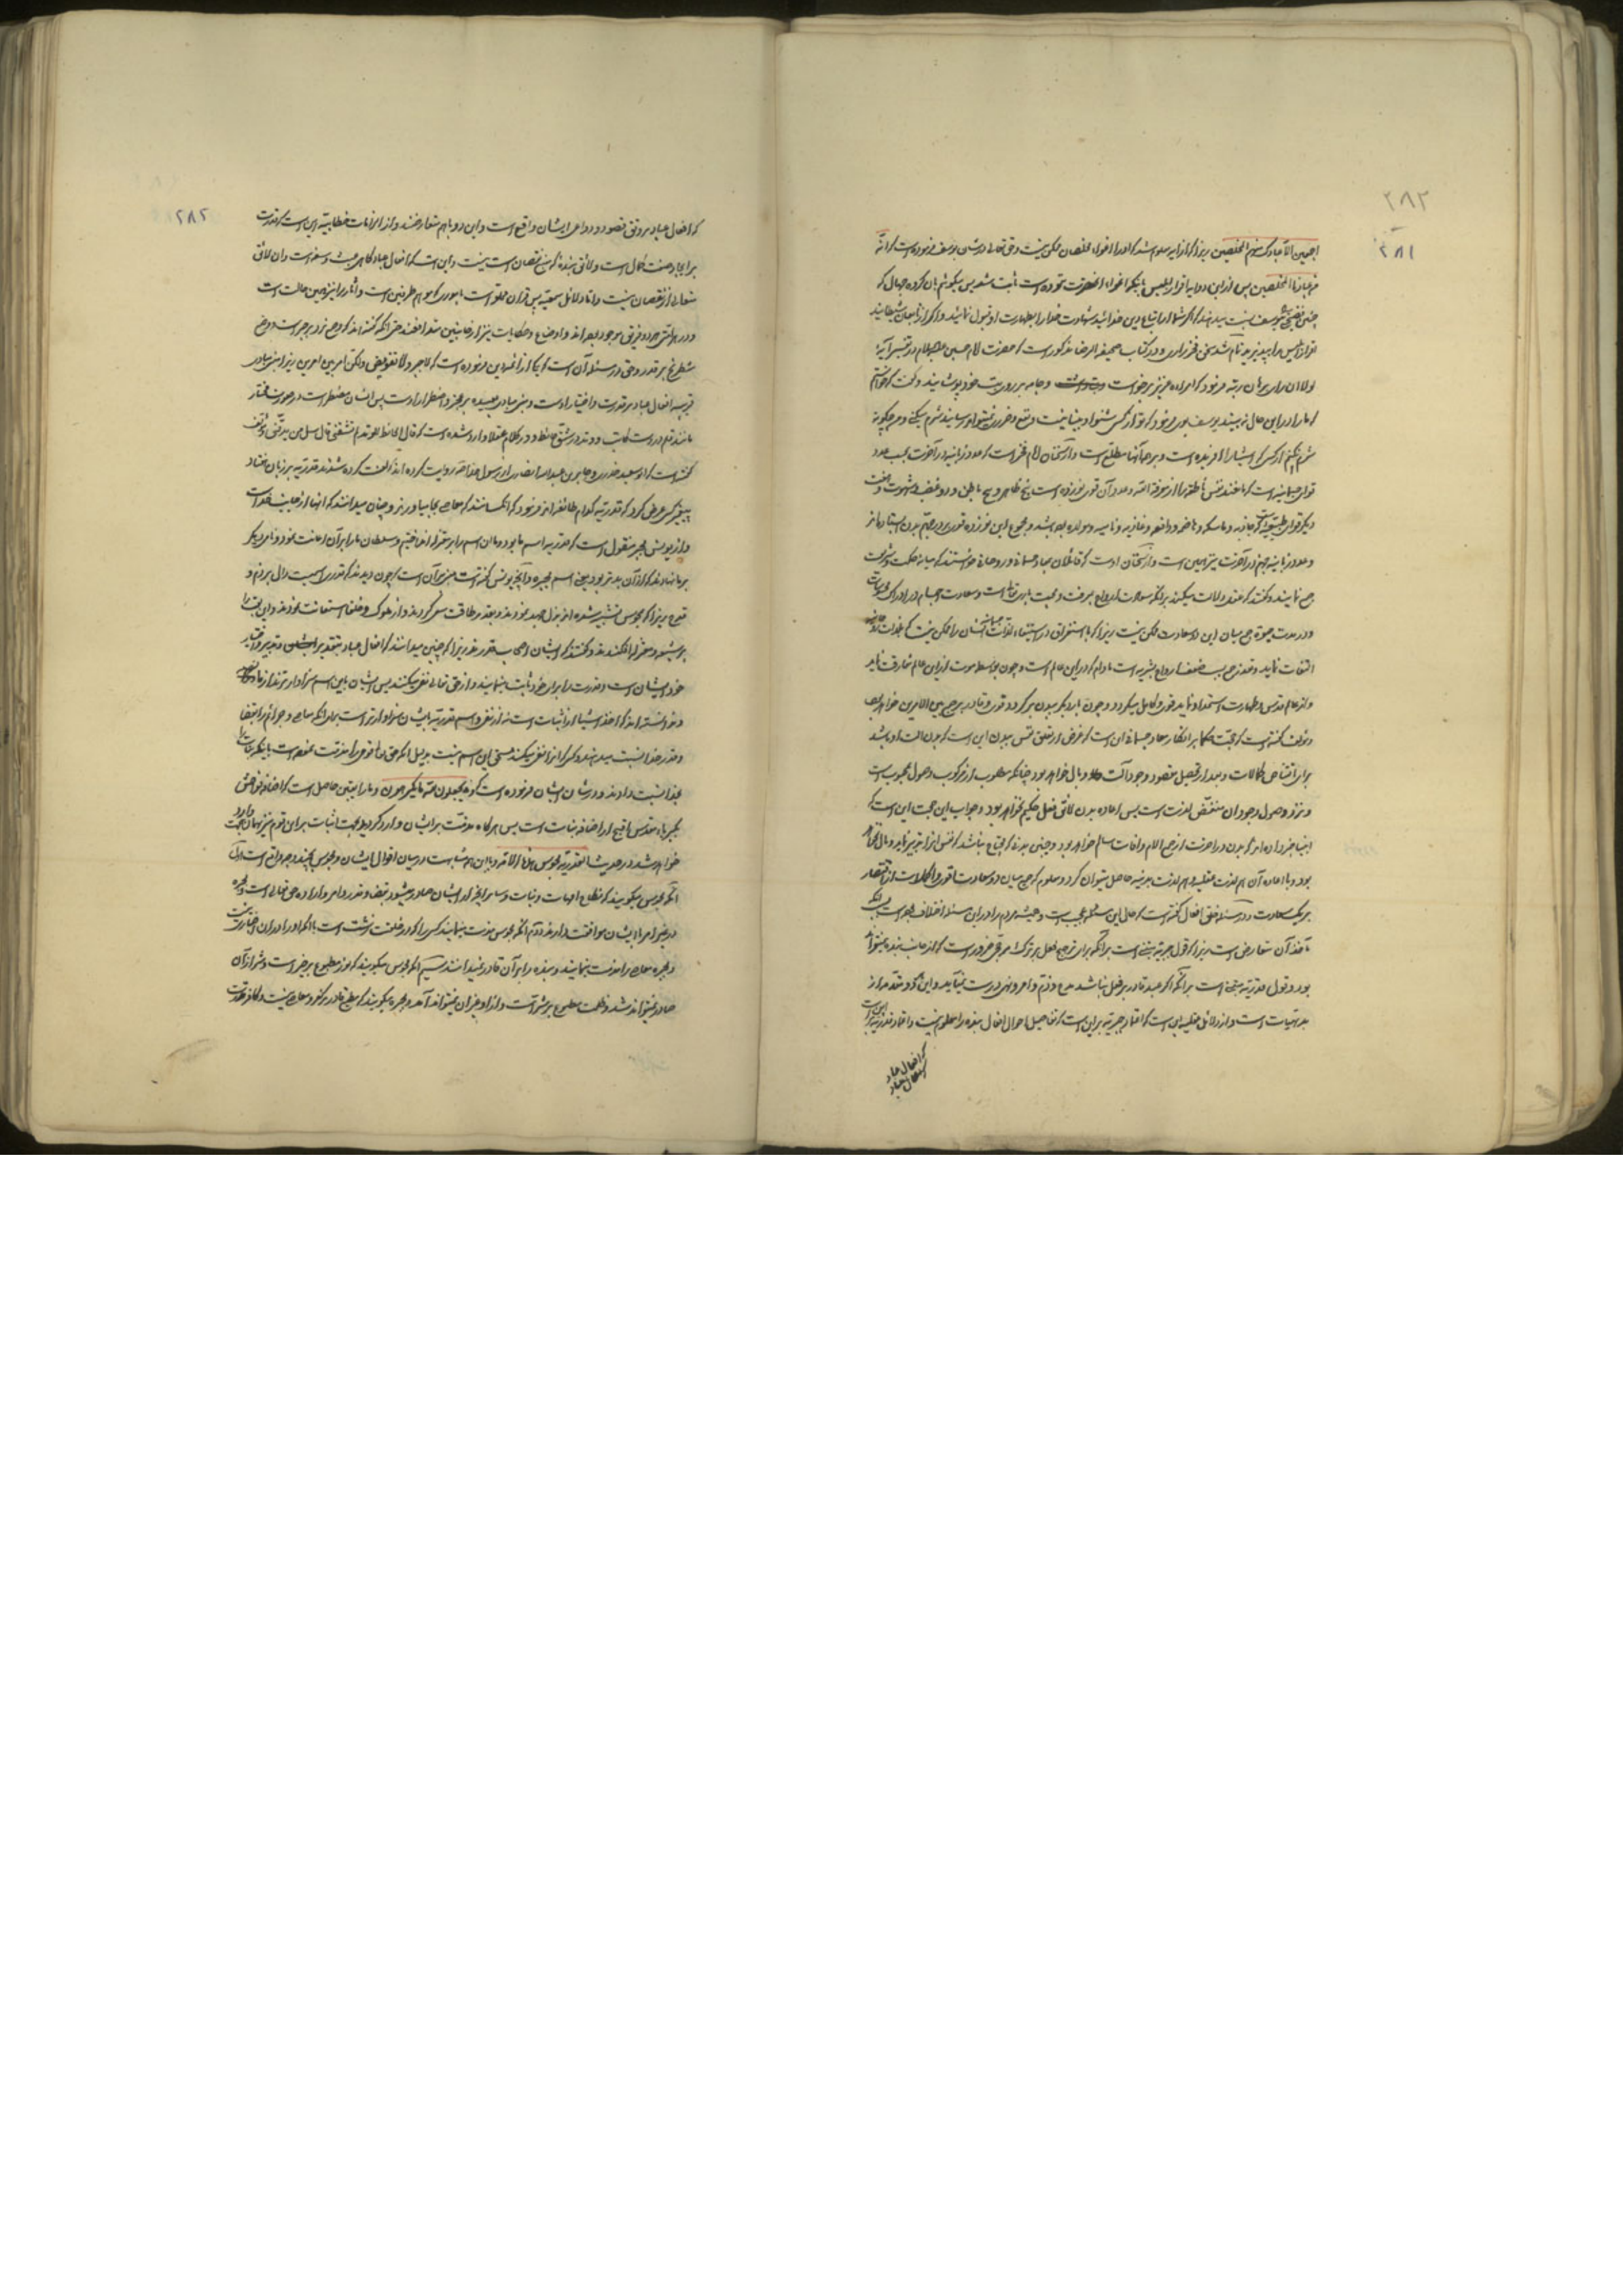 ۲۸۲
۲۸۱
اجمعین الا عبادک منهم المخلصین زیرا که از این معلوم شد که او را اغوای مخلصان ممکن نیست و حق تعالی در شأن یوسف فرموده است که انه
من عبادنا المخلصین پس از این دو آیه اقرار ابلیس باینکه اغواء آنحضرت نکرده است ثابت شد پس میگوئیم بآن گروه جهال که
چنین فضیحتی بیوسف نسبت میدهند که اگر شما از اتباع دین خدائید شهادت خدا را بطهارت او قبول نمائید و اگر از تابعان شیطانید
اقرار ابلیس را بپذیرید تمام شد سخن فخر رازی و در کتاب صحیفة الرضا مذکور است که حضرت امام حسین علیه السلام در تفسیر آیه
لولا ان رای برهان ربه فرمود که امراه عزیز برخواست و جامه بر روی بت خود پوشانید و گفت که خواستم
که ما را در این حال نه بیند یوسف فرمود که تو از کسی شنوا و بینا نیست و نفع و ضرر نمیتواند رسانید شرم میکنی و من چگونه
شرم نکنم از کسی که اشیا را آفریده است و بر همه آنها مطلع است و از سخنان امام فخر است که عدد زبانیه در آخرت بحسب عدد
قوای جسمانیه است که مانعند نفس ناطقه را از معرفة الله و عدد آن قوی نوزده است پنج ظاهر و پنج باطن و دو غضب و شهوت و هفت
دیگر قوای طبیعیه است که جاذبه و ماسکه و هاضمه و دافعه و غاذیه و نامیه و مولده باشد و مجموع این نوزده قوه بر در جهنم بدن ایستاده‌اند
و عدد زبانیه جهنم در آخرت نیز همین است و از سخنان اوست که قائلان بمعاد جسمانی و روحانی خواستند که میان حکمت و شریعت
جمع نمایند و گفتند که عقل دلالت میکند بر آنکه سعادت ارواح بمعرفت و محبت باری تعالی است و سعادت اجسام در ادراک محسوسات
و در مدت حیوة جمع میان این دو سعادت ممکن نیست زیرا که با استغراق در استیفاء لذات جسمانیه انسان را ممکن نیست که بلذات روحانیه
التفات نماید و تعذر جمع بسبب ضعف ارواح بشریه است مادام که در این عالم است و چون بواسطه موت از این عالم مفارقت نماید
و از عالم قدس و طهارت استمداد نماید قوی و کامل میگردد و چون بار دیگر ببدن برگردد قوی و قادر بر جمع بین الامرین خواهد بود
و مؤلف گفته است که حجت حکما بر انکار معاد جسمانی این است که غرض از تعلق نفس ببدن این است که بدن آلت او باشد
برای اقتناص کمالات و بعد از تحصیل مقصود وجود آلت وبال خواهد بود چنانکه مطلوب از مرکوب وصول بمحبوب است
و نزد وصول وجود آن منغص لذت است پس اعاده بدن لائق فعل حکیم نخواهد بود و جواب این حجت این است که
انبیا خبر داده‌اند که بدن در آخرت از جمیع آلام و آفات سالم خواهد بود و چنین بدنی که محتاج نباشد که نفس آنرا تدبیر نماید وبال نخواهد
بود و با اعاده آن هم لذت عقلیه و هم لذت بدنیه حاصل میتوان کرد و معلوم که جمع میان دو سعادت اقوی و اکمل است از اقتصار
بر یک سعادت و در مسئله خلق افعال گفته است که حال این مسئله عجیب است و همیشه مردم را در این مسئله اختلاف بوده است بسبب آنکه
مأخذ آن متعارض است زیرا که قول جبریه مبنی است بر آنکه برای ترجیح فعل بر ترک مرجحی ضرور است که از جانب بنده نمیتواند
بود و قول قدریه مبنی است بر آنکه اگر عبد قادر بر فعل نباشد مدح و ذم و امر و نهی درست نمیآید و این هر دو مقدمه از
بدیهیات است و از دلائل عقلیه این است که اعتماد جبریه بر این است که تفاصیل احوال افعال بنده را معلوم نیست و اعتماد قدریه بر این است
که افعال عباد
که افعال عباد
۲۸۲
که افعال عباد بر وفق قصود و دواعی ایشان واقع است و این دو با هم متعارضند و از الزامات خطابیه این است که قدرت
بر ایجاد صفت کمال است و لائق بنده که منبع نقصان است نیست و این است که افعال عباد گاهی عبث و سفه است و آن لائق
متعالی از نقصان نیست و اما دلائل سمعیه پس قرآن مملو است بامور که موهم طرفین است و آثار را نیز همین حالت است
و در هر امتی هر دو فریق موجود بوده‌اند و اوضاع و حکایات نیز از جانبین متدافعند حتی آنکه گفته‌اند که وضع نرد بر جبر است و وضع
شطرنج بر قدر و حق در مسئله آن است که یکی از ائمه دین فرموده است که لا جبر و لا تفویض ولکن امر بین امرین زیرا مبنی مبادی
قریبه افعال عباد بر قدرت و اختیار اوست و مبنی مبادی بعیده بر عجز و اضطرار اوست پس انسان مضطر است در صورت مختار
مانند قلم در دست کاتب و وتد در شق حائط و در کلام عقلا وارد شده است که قال الحائط للوتد لم تشقنی قال سل من یدقنی و مؤلف
گفته است که ابو سعید خدری و جابر بن عبدالله انصاری از رسول خدا روایت کرده‌اند که لعنت کرده شدند قدریه بر زبان هفتاد
پیغمبر کسی عرض کرد که قدریه کدام طائفه‌اند فرمود که آن کسانند که معاصی بجا میآورند و چنان میدانند که آنها از جانب خدا است
و از یونس نحوی منقول است که قدریه اسم ما بود و ما آن اسم را بر معتزله انداختیم و سلطان ما را بر آن اعانت نمود و نام دیگر
بر ما نهادند که از آن بدتر بود یعنی اسم مجبره و آنچه یونس گفته است مبنی بر آن است که چون دیدند که قدری اسمیست دال بر ذم و
قبح زیرا که بمجوس تشبیه شده‌اند بذل جهد نمودند و بقدر طاقت سعی کردند و از ملوک و خلفا استعانت نمودند و این لقب را
بر شیعه و معتزله افکندند و گفتند که ایشان احق باسم قدریند زیرا که چنین میدانند که افعال عباد بتقدیر و تدبیر و اختیار
خود ایشان است و قدرت را برای خود ثابت مینمایند و از حق تعالی نفی میکنند پس ایشان باین اسم سزاوارترند از ما
و ندانسته‌اند که اخذ اشیا از اثبات است نه از نفی و اسم قدریه بایشان سزاوارتر است برای آنکه معاصی و جرائم را بقضا
و قدر خدا نسبت میدهند و کسی که آنرا نفی میکند مستحق این اسم نیست بدلیل آنکه حق تعالی قومی را مذمت نموده است باینکه بنات را
بخدا نسبت دادند و در شأن ایشان فرموده است که و یجعلون لله ما یکرهون و ما را یقین حاصل است که اضافه فواحش
بکبریاء مقدس اقبح از اضافه بنات است پس هرگاه مذمت بر ایشان وارد گردید بجهت اثبات بر این قوم نیز بهمان جهت وارد
خواهد شد و در حدیث القدریة مجوس هذه الامة و با این همه مشابهت در میان اقوال ایشان و مجوس بچند وجه واقع است اول
آنکه مجوس میگویند که نکاح امهات و بنات و سایر آنچه از ایشان صادر میشود بقضا و قدر و امر و اراده حق تعالی است و مجبره
در غیر امر با ایشان موافقت دارند دوم آنکه مجوس مذمت مینمایند کسی را که در خلقت زشت است با آنکه او را در آن اختیاری نیست
و مجبره معاصی را مذمت مینمایند و بنده را بر آن قادر نمیدانند سیم آنکه مجوس میگویند که نور مطبوع بر خیر است و شر از آن
صادر نمیتواند شد و ظلمت مطبوع بر شر است و از او خیر آن نمیتواند آمد و مجبره میگویند که مطیع قادر بر کفر و معاصی نیست و کافر قدرت